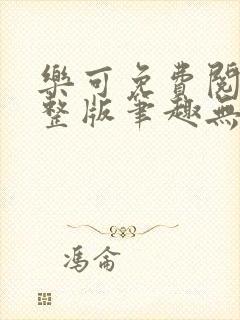 樂可免費閱
整版筆趣無
馮侖